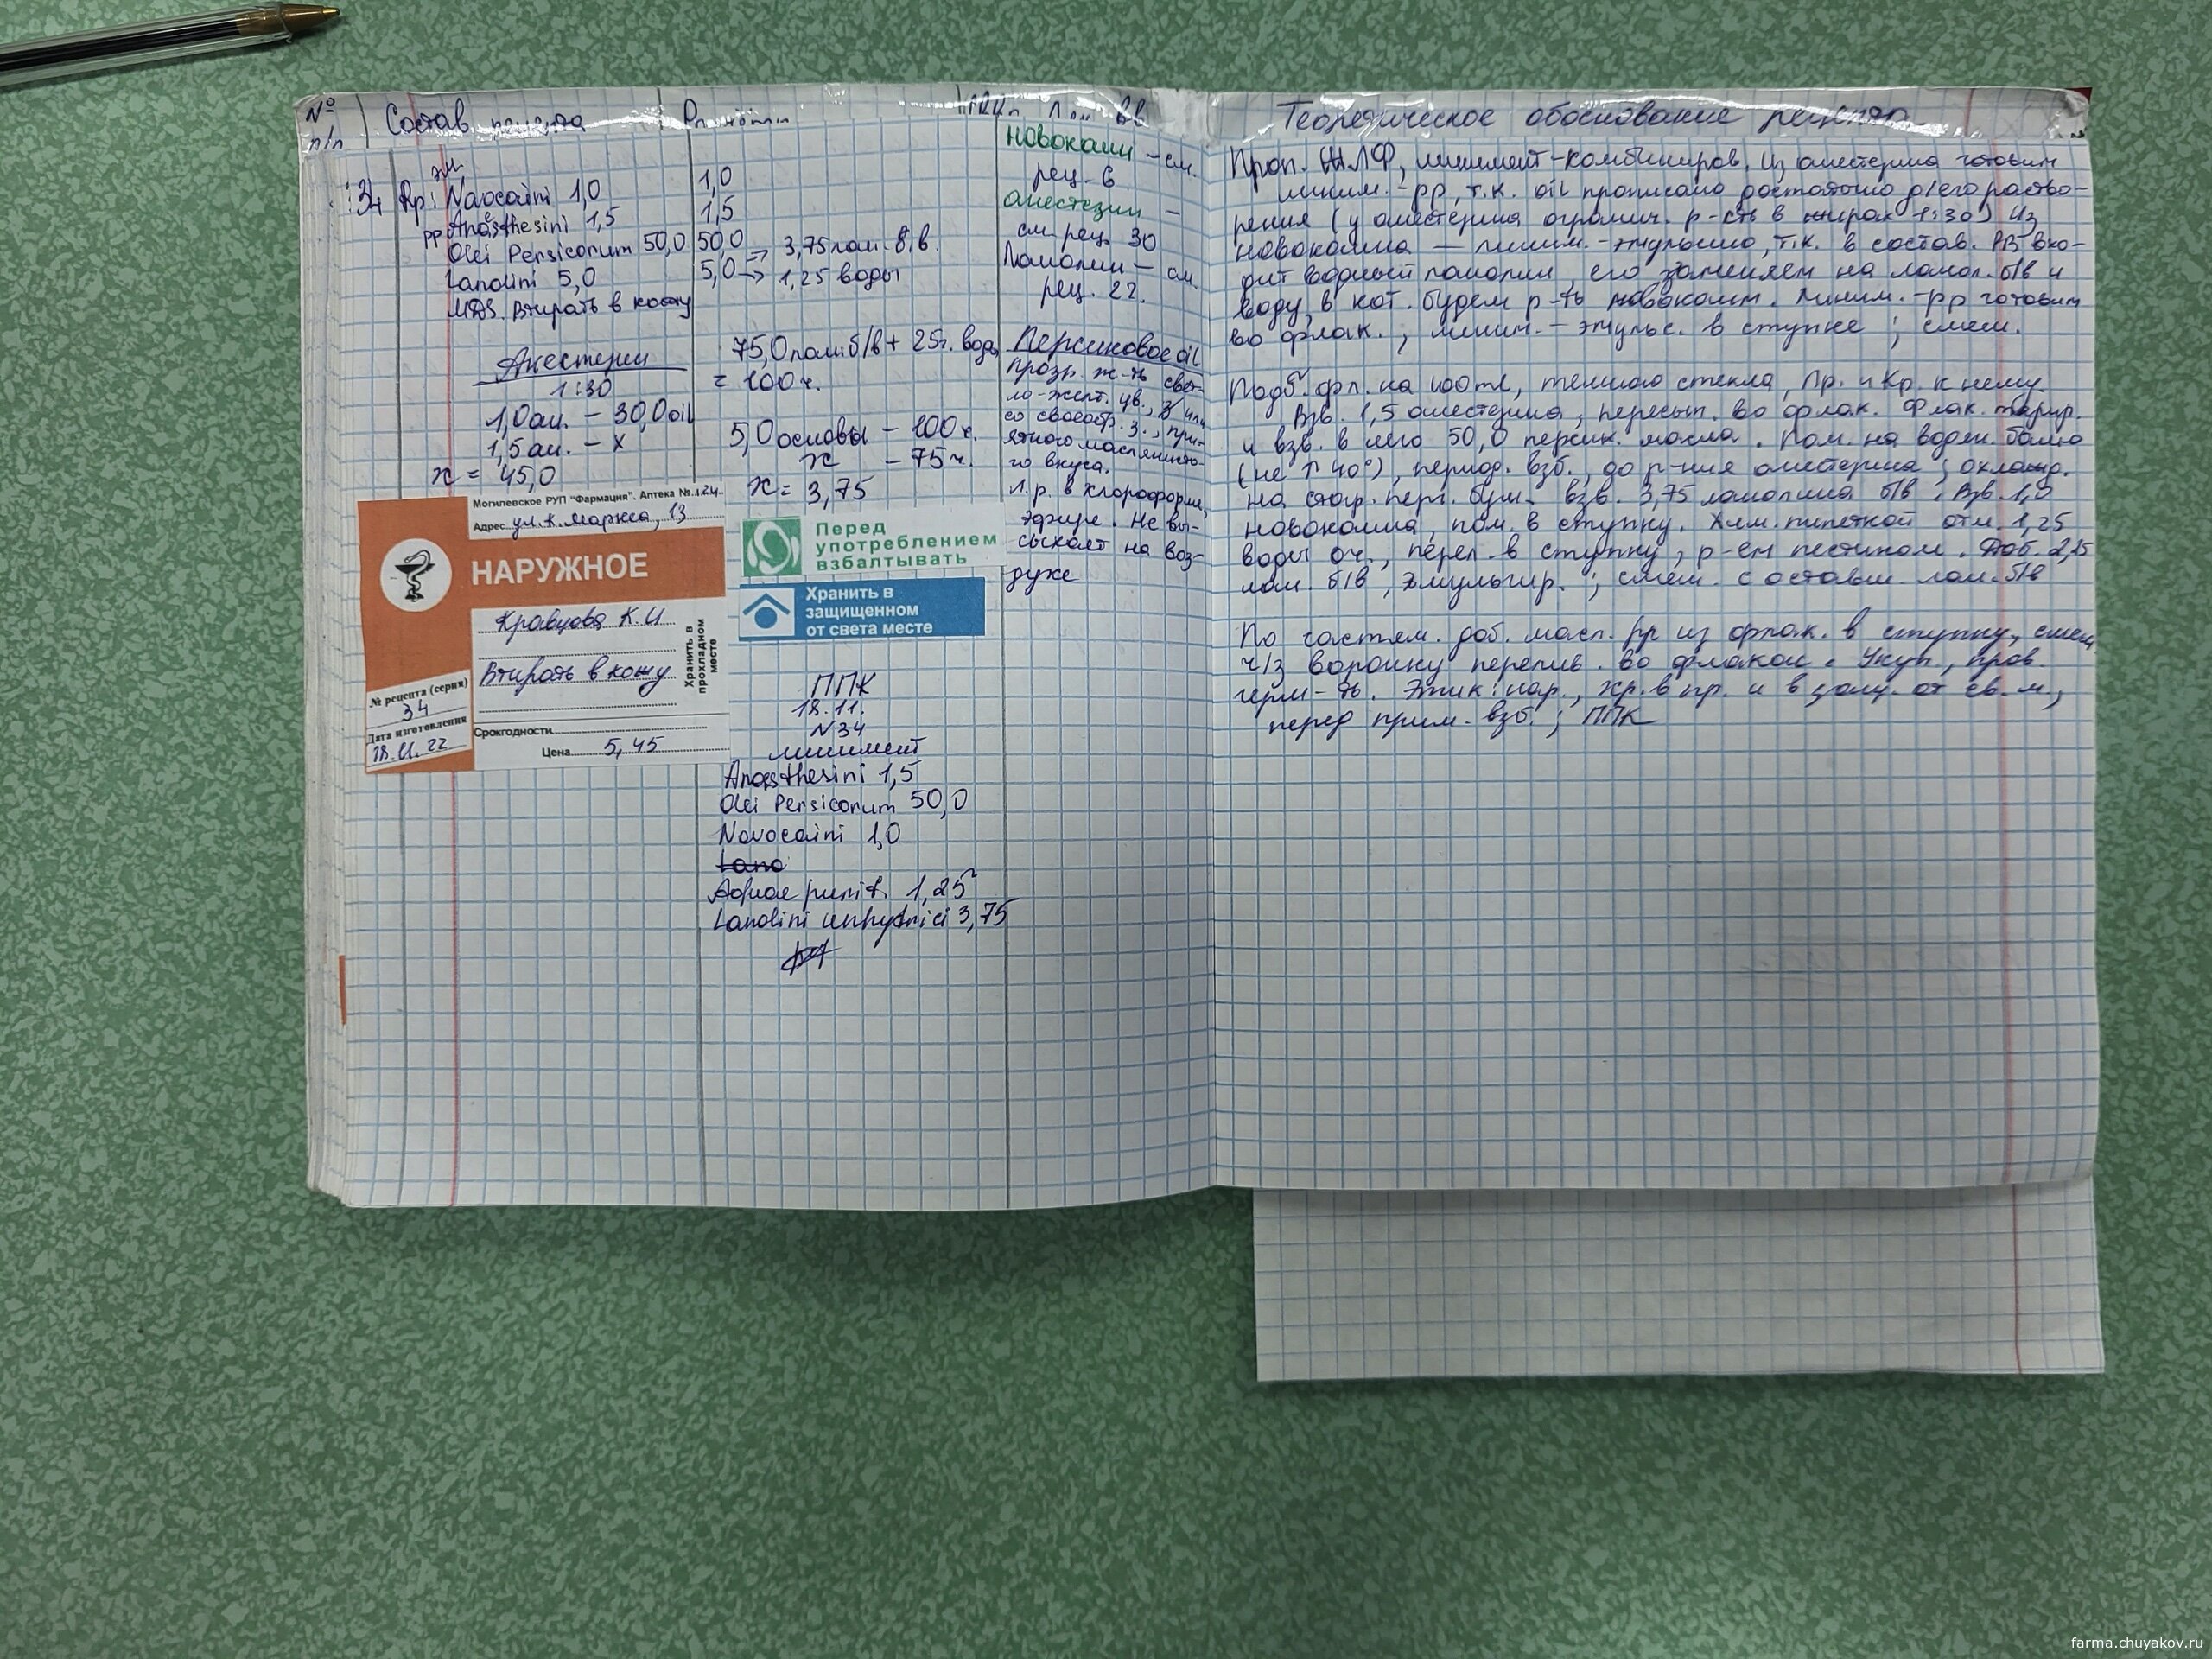 № п/п
Состав рецепта
Теоретическое обоснование рецепта
34
эм
Rp: Novocaini 1,0
рр Anaesthesini 1,5
Olei Persicorum 50,0
Lanolini 5,0
MDS. Втирать в кожу
1,0
1,5
50,0
5,0 → 3,75 лан. б.в.
→ 1,25 воды
Анестезин
1:30
1,0 ан. – 30,0 oil
1,5 ан. – х
х = 45,0
75,0 лан. б/в + 25г. воды
= 100 ч.
5,0 основы – 100 ч.
х – 75 ч.
х = 3,75
новокаин – см.
рец. 6
анестезин –
см. рец. 30
Ланолин – см.
рец. 22.
Персиковое oil
прозр. ж-ть свет-
ло-желт. цв., б/ или
со своеобр. з., при-
ятного маслянисто-
го вкуса.
Л.р. в хлороформе,
эфире. Не вы-
сыхает на воз-
духе
Могилевское РУП "Фармация". Аптека № 124
Адрес ул. К. Маркса, 13
НАРУЖНОЕ
Кравцова К.И
Втирать в кожу
Хранить в прохладном месте
№ рецепта (серия)
34
Дата изготовления
18.11.22
Срок годности
Цена 5,45
Перед
употреблением
взбалтывать
Хранить в
защищенном
от света месте
ППК
18.11.
N 34
линимент
Anaesthesini 1,5
Olei Persicorum 50,0
Novocaini 1,0
Lano
Aquae purif. 1,25
Lanolini anhydrici 3,75
Проп. ЖЛФ, линимент-комбиниров. Из анестезина готовим
линим.-рр, т.к. oil прописано достаточно д/его раство-
рения (у анестезина огранич. р-сть в жирах 1:30) Из
новокаина — линим.-эмульсию, т.к. в состав. РВ вхо-
дит водный ланолин, его заменяем на ланол. б/в и
воду, в кот. будем р-ть новокаин. Линим.-рр готовим
во флак., линим.-эмульс. в ступке; смеш.
Подб. фл. на 100 ml, темного стекла, Пр. и Кр. к нему.
Взв. 1,5 анестезина, пересып. во флак. Флак. тарир.
и взв. в него 50,0 персик. масла. Пом. на водян. баню
(не ↑ 40°), период. взб., до р-ния анестезина; охлажд.
На стор. перг. бум. взв. 3,75 ланолина б/в. Взв. 1,0
новокаина, пом. в ступку. Хим. пипеткой отм. 1,25
воды оч., перел. в ступку, р-ем пестиком. Доб.
лан. б/в, эмульгир.; смеш. с оставш. лан. б/в
По частям. доб. масл. рр из флак. в ступку, смеш
ч/з воронку перелив. во флакон. Укуп., пров.
герм-ть. Этик: нар., хр. в пр. и в защ. от св. м.,
перед прим. взб.; ППК
farma.chuyakov.ru